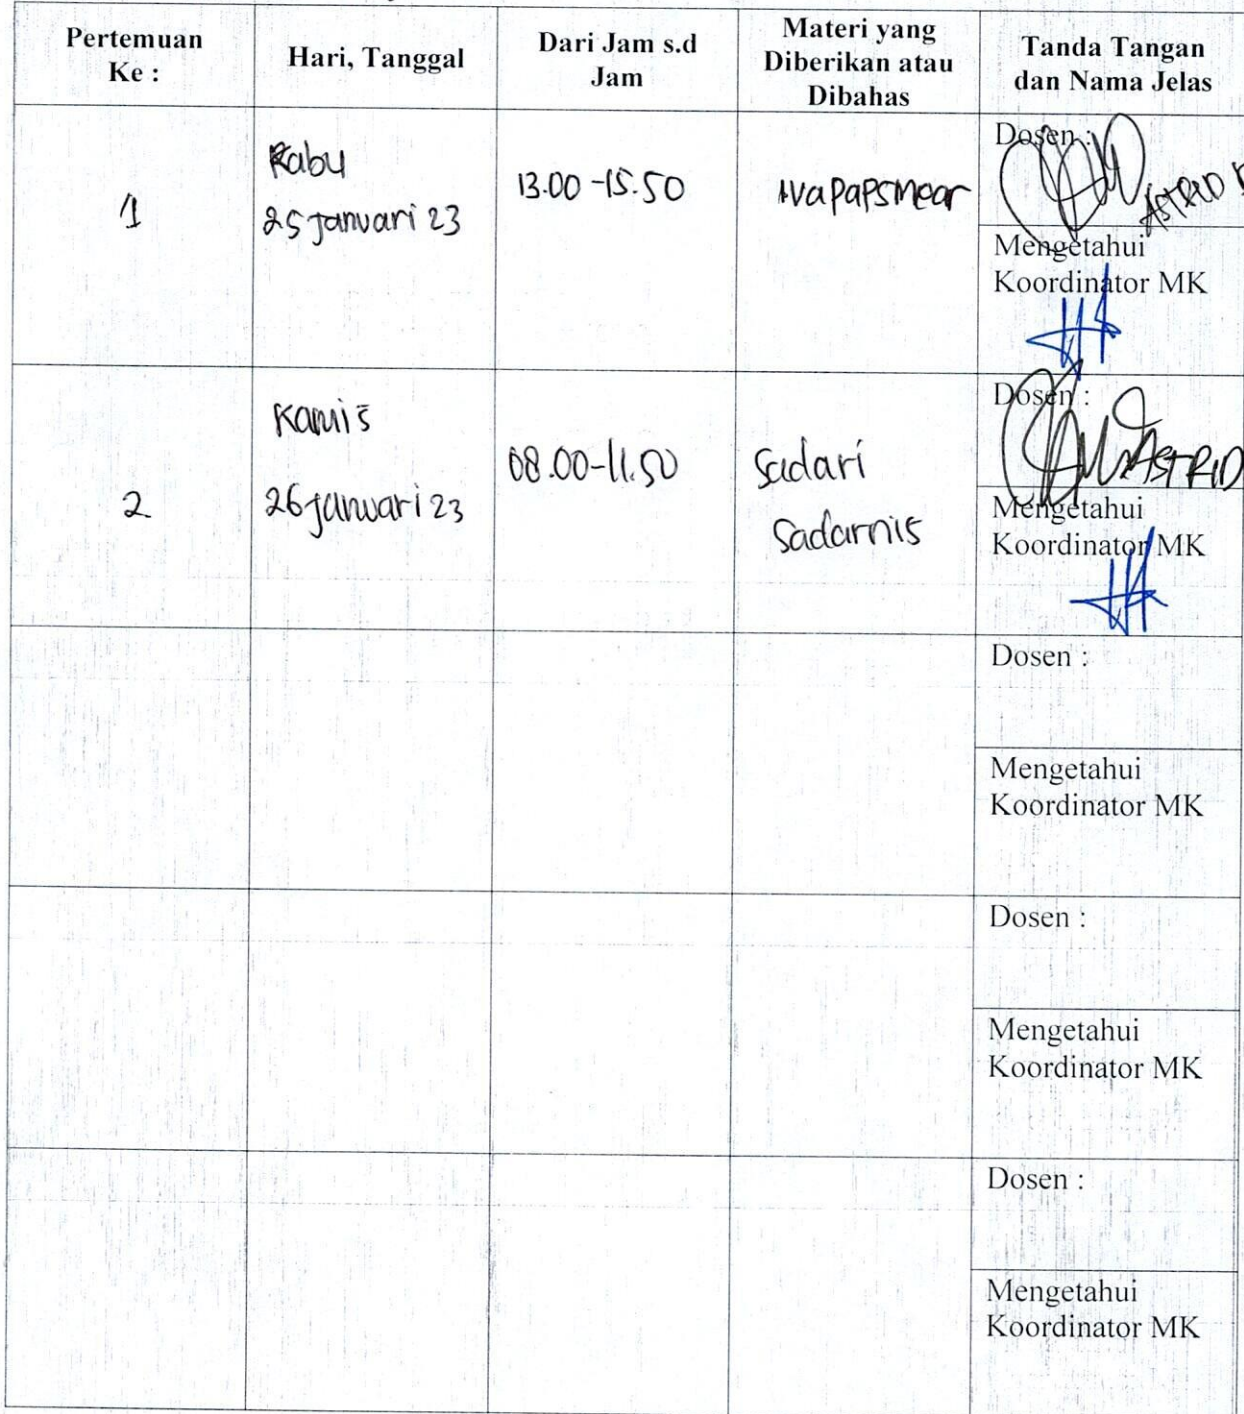 Pertemuan
Ke :
Hari, Tanggal
Dari Jam s.d
Jam
Materi yang
Diberikan atau
Dibahas
Tanda Tangan
dan Nama Jelas
1
Rabu
25 januari 23
13.00 - 15.50
Iva papsmear
Dosen :
ASTRID
Mengetahui
Koordinator MK
2
Kamis
26 januari 23
08.00 - 11.50
Sadari
Sadarnis
Dosen :
ASTRID
Mengetahui
Koordinator MK
Dosen :
Mengetahui
Koordinator MK
Dosen :
Mengetahui
Koordinator MK
Dosen :
Mengetahui
Koordinator MK